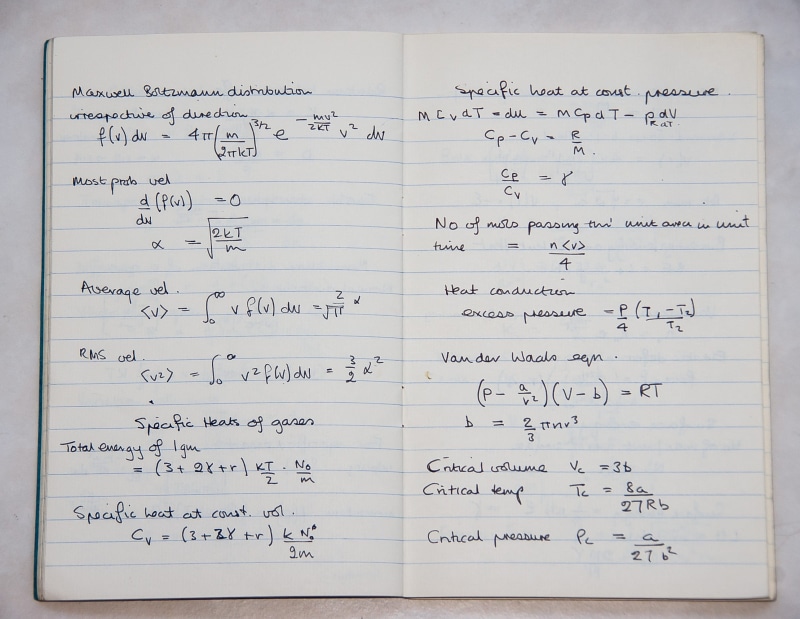 Maxwell Boltzmann distribution
irrespective of direction
f(v) dv = 4π(m/2πkT)^3/2 e^−mv²/2kT v² dv
Most prob vel
d/dv (f(v)) = 0
α = √(2kT/m)
Average vel.
<v> = ∫₀^∞ v f(v) dv = 2/√π α
RMS vel.
<v²> = ∫₀^∞ v² f(v) dv = 3/2 α²
Specific Heats of gases
Total energy of 1gm
= (3 + 2γ + r) kT/2 · N₀/m
Specific heat at const. vol.
Cv = (3 + 2γ + r) k N₀/2m
Specific heat at const. pressure.
M Cv dT = du = M Cp dT − p dV/dT
Cp − Cv = R/M.
Cp/Cv = γ
No of mols passing thro' unit area in unit
time = n<v>/4
Heat conduction
excess pressure = P/4 (T₁ − T₂)/T₂
Van der Waals eqn.
(P − a/v²)(V − b) = RT
b = 2/3 πnr³
Critical volume Vc = 3b
Critical temp Tc = 8a/27Rb
Critical pressure Pc = a/27b²